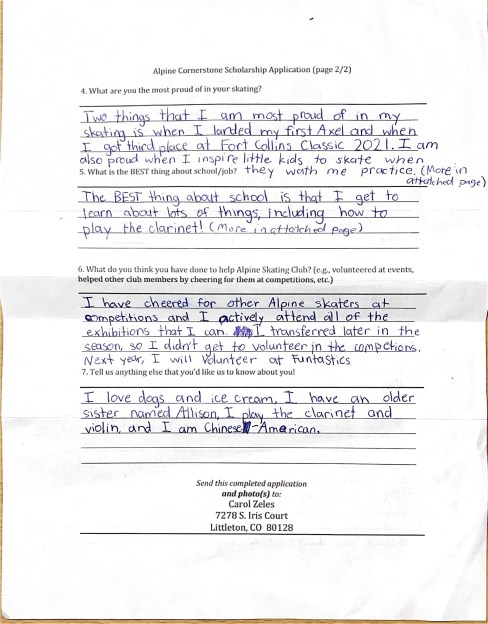 Alpine Cornerstone Scholarship Application (page 2/2)
4. What are you the most proud of in your skating?
Two things that I am most proud of in my
skating is when I landed my first Axel and when
I got third place at Fort Collins Classic 2021. I am
also proud when I inspire little kids to skate when
5. What is the BEST thing about school/job? they wath me practice. (More in
attatched page)
The BEST thing about school is that I get to
learn about lots of things, including how to
play the clarinet! (More in attatched page)
6. What do you think you have done to help Alpine Skating Club? (e.g., volunteered at events,
helped other club members by cheering for them at competitions, etc.)
I have cheered for other Alpine skaters at
competitions and I actively attend all of the
exhibitions that I can. I transferred later in the
season, so I didn't get to volunteer in the compctions.
Next year, I will Volunteer at Funtastics
7. Tell us anything else that you'd like us to know about you!
I love dogs and ice cream, I have an older
sister named Allison, I play the clarinet and
violin, and I am Chinese-American.
Send this completed application
and photo(s) to:
Carol Zeles
7278 S. Iris Court
Littleton, CO 80128